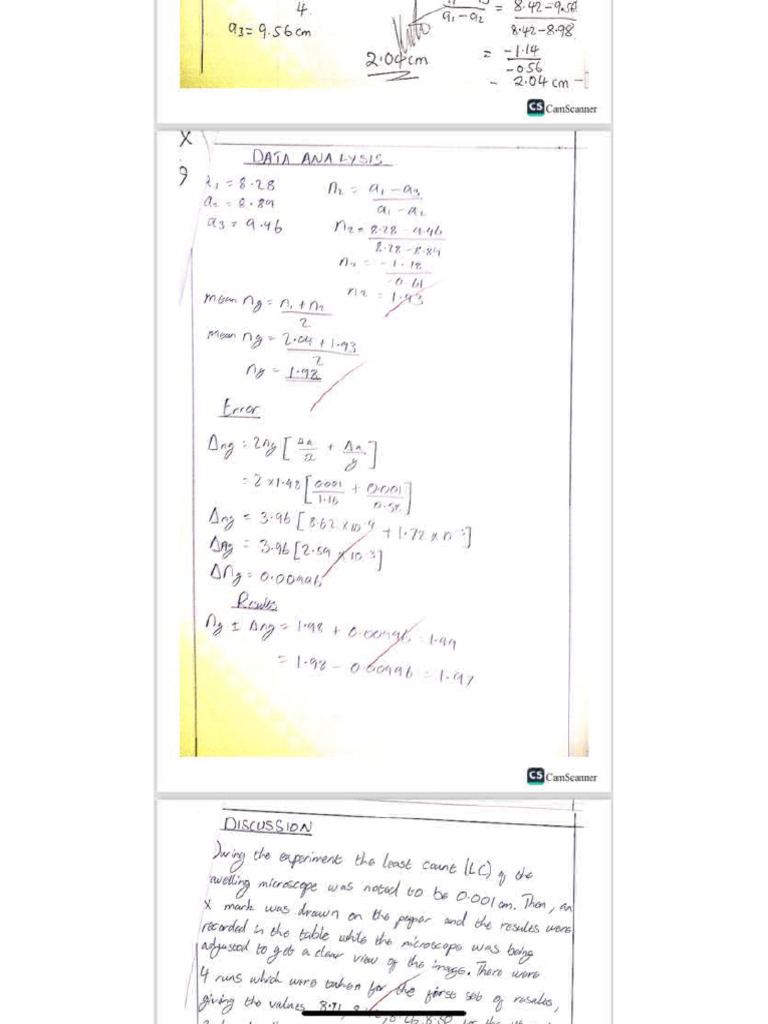 4
a3 = 9.56 cm
a1 - a2 = 8.42 - 9.56
8.42 - 8.98
2.04 cm
= -1.14
-0.56
- 2.04 cm
CS CamScanner
X
DATA ANALYSIS
9
= 8.28
n2 = a1 - a3
a1 - a2
a2 = 8.89
a3 = 9.46
n2 = 8.28 - 9.46
8.28 - 8.89
n2 = -1.18
-0.61
n2 = 1.93
mean ng = n1 + n2
2
mean ng = 2.04 + 1.93
2
ng = 1.98
Error
Δng = 2ng [Δa/x + Δa/y]
= 2 x 1.98 [0.001/1.16 + 0.001/0.58]
Δng = 3.96 [8.62 x 10-4 + 1.72 x 10-3]
Δng = 3.96 [2.59 x 10-3]
Δng = 0.00996
Results
ng ± Δng = 1.98 + 0.00996 = 1.99
= 1.98 - 0.00996 = 1.97
CS CamScanner
DISCUSSION
During the experiment the least count (LC) of the
travelling microscope was noted to be 0.001 cm. Then, an
X mark was drawn on the paper and the results were
recorded in the table while the microscope was being
adjusted to get a clear view of the image. There were
4 runs which were taken for the first set of results,
giving the values 8.91,